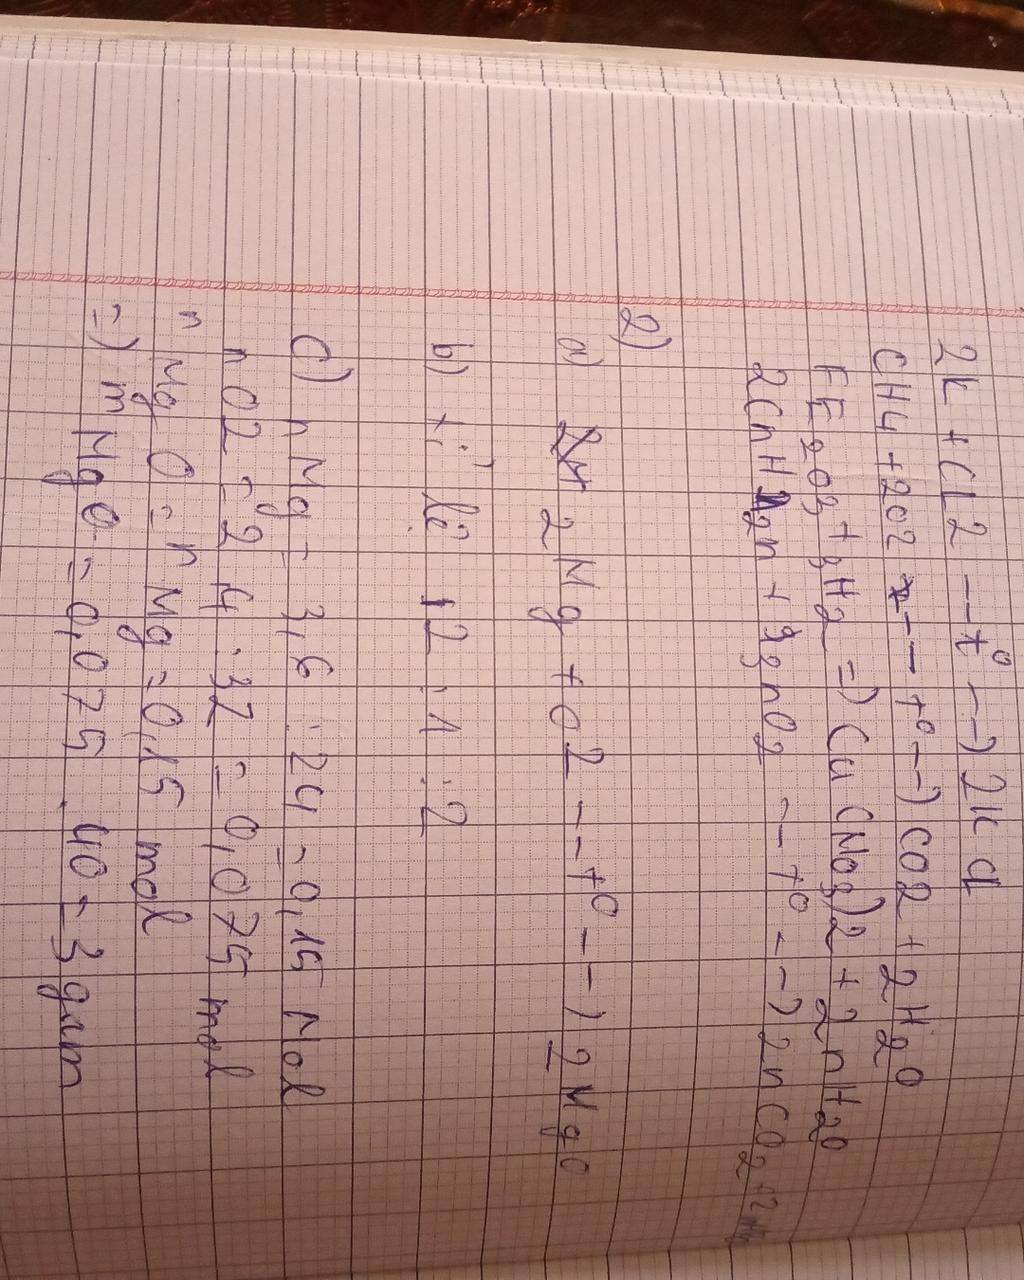 2K + Cl2 --t° --) 2K Cl
CH4 + 2O2 -- t° --) CO2 + 2H2O
FE2O3 + 3H2 =) Cu (NO3)2 + 2nH2O
2CnH2n + 3nO2 -- t° --) 2nCO2 +
2)
a) 2Mg + O2 -- t° --) 2MgO
b) tỉ lệ 2 : 1 : 2
c) n Mg = 3,6 : 24 = 0,15 Mol
n O2 = 2,4 : 32 = 0,075 mol
n Mg O = n Mg = 0,15 mol
=) m MgO = 0,075 . 40 = 3 gam